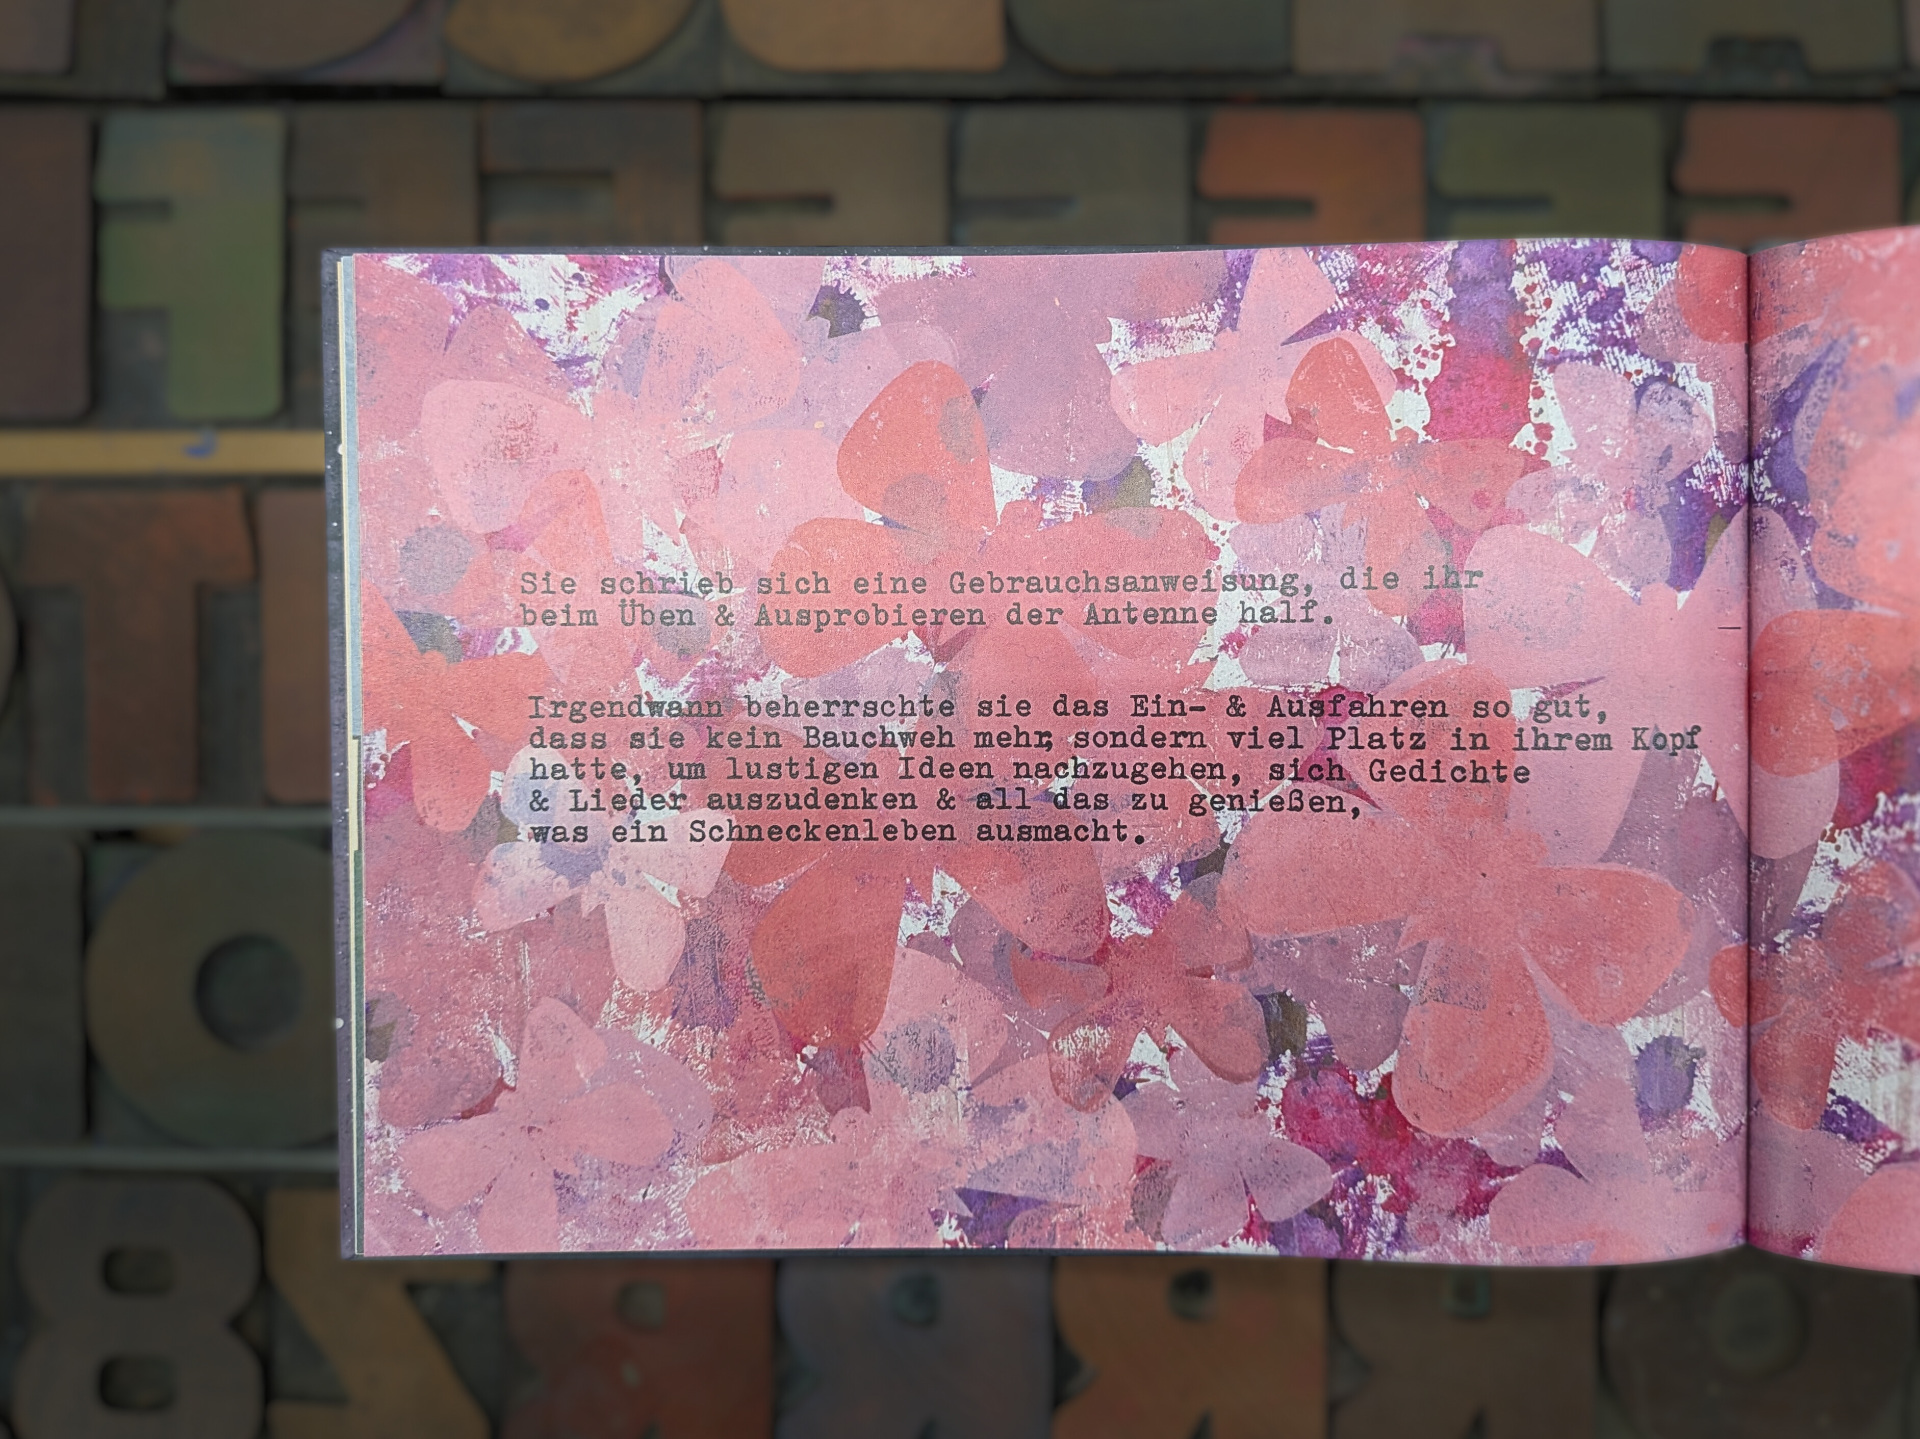 Sie schrieb sich eine Gebrauchsanweisung, die ihr
beim Üben & Ausprobieren der Antenne half.
Irgendwann beherrschte sie das Ein- & Ausfahren so gut,
dass sie kein Bauchweh mehr, sondern viel Platz in ihrem Kopf
hatte, um lustigen Ideen nachzugehen, sich Gedichte
& Lieder auszudenken & all das zu genießen,
was ein Schneckenleben ausmacht.